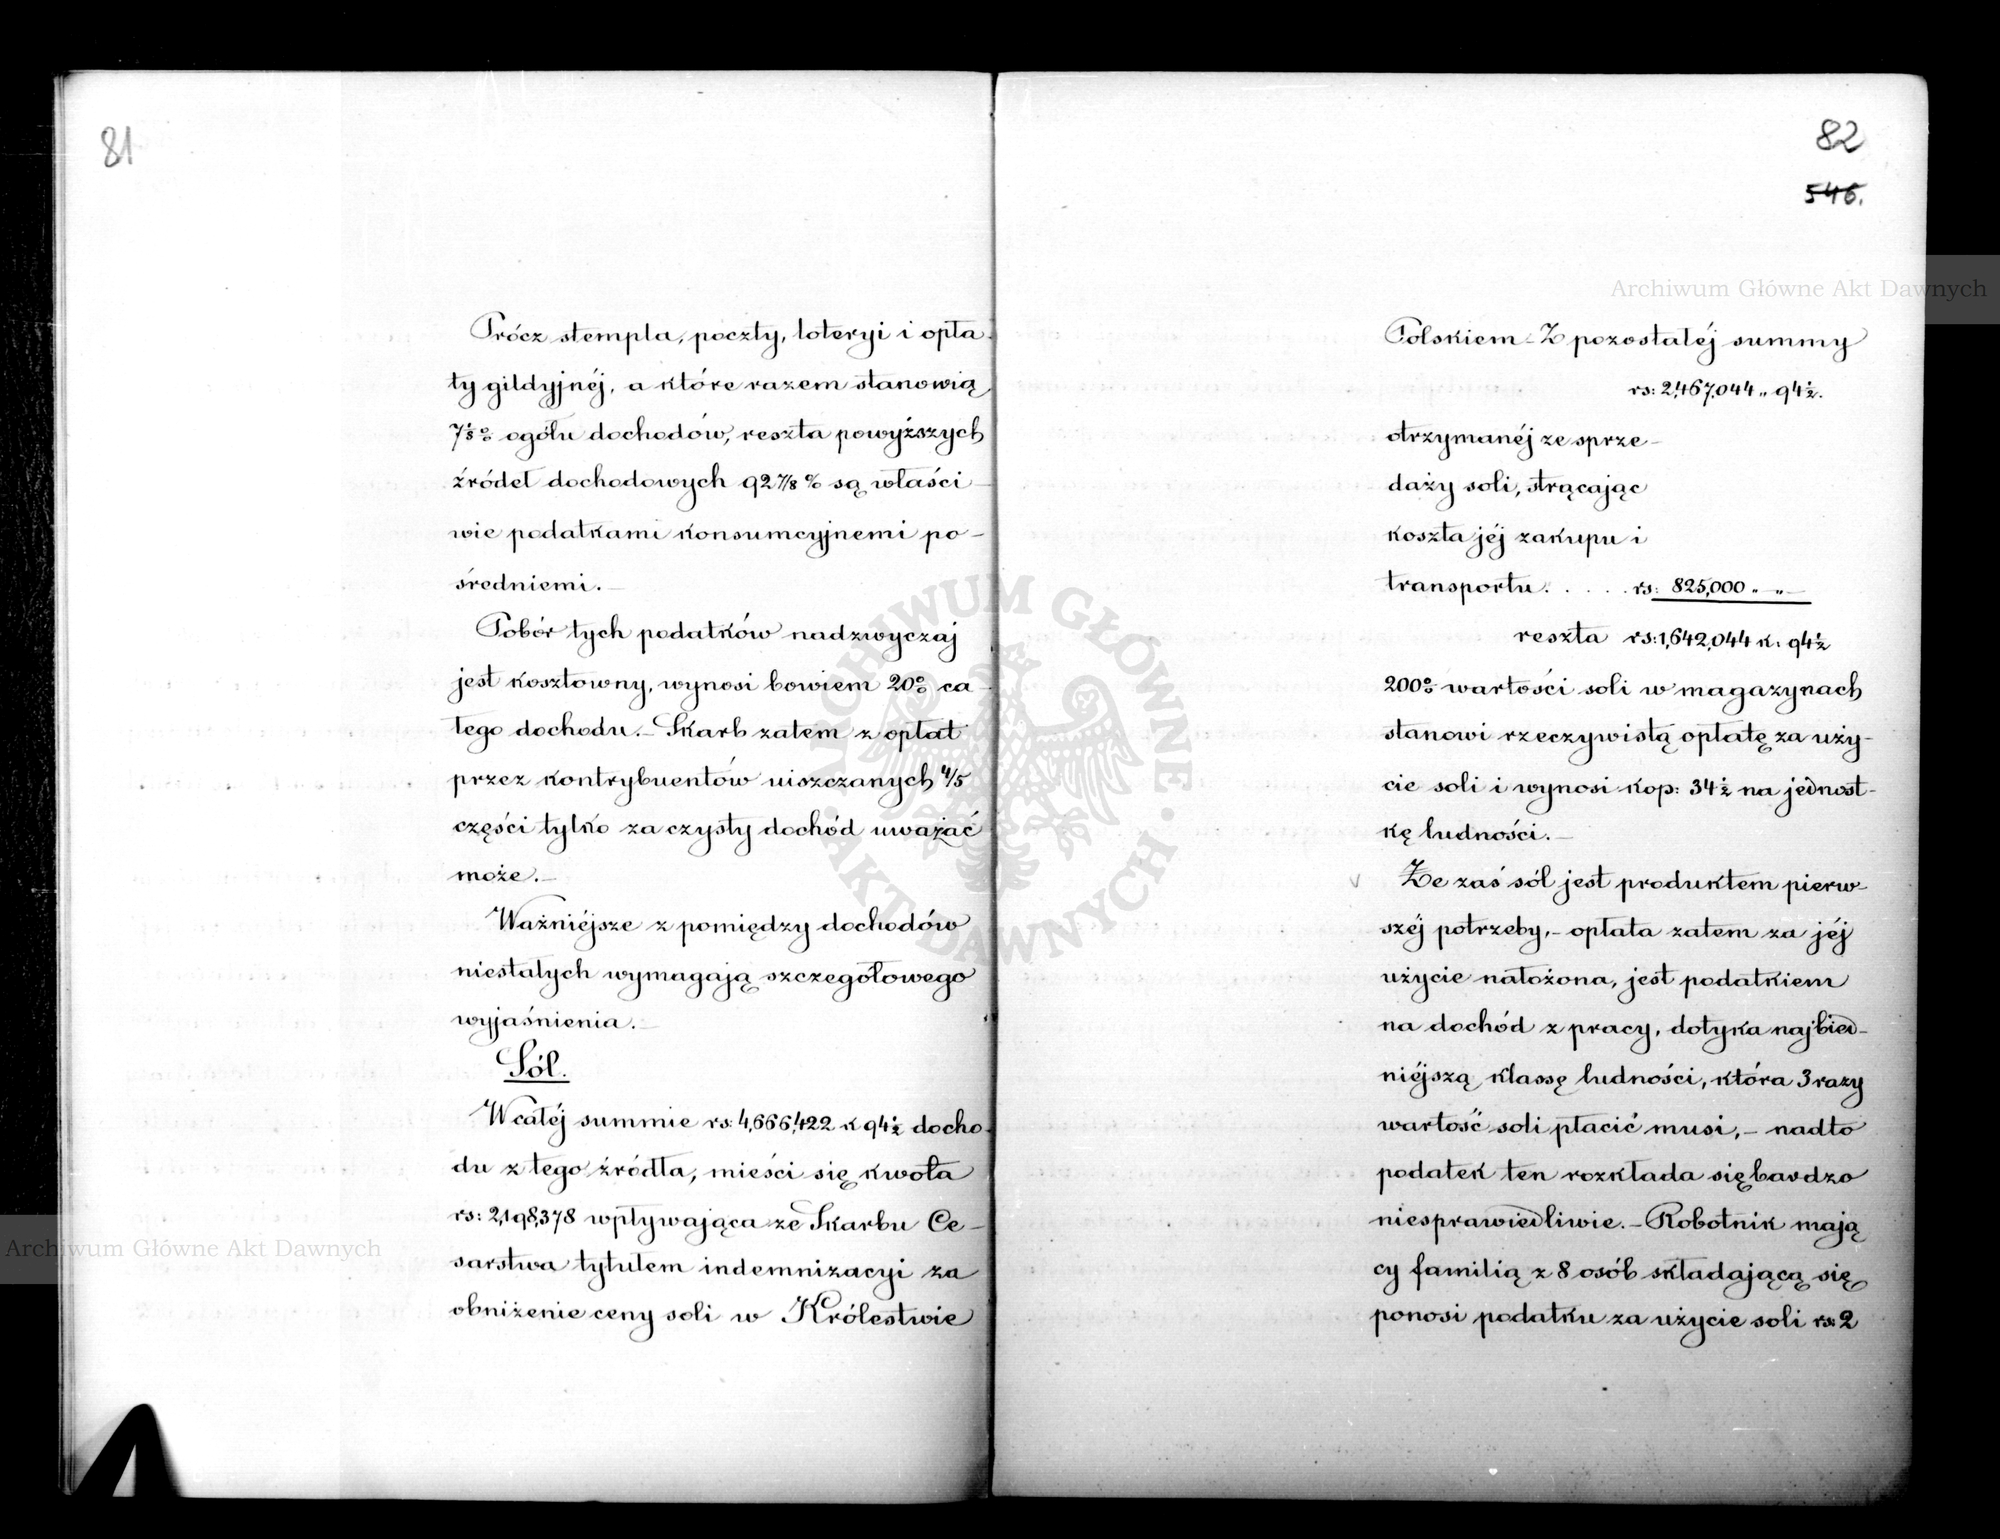 81
Prócz stempla, poczty, loteryi i opła-
ty gildyjnéj, a które razem stanowią
7⅛% ogółu dochodów, reszta powyższych
źródeł dochodowych 92 7/8 % są właści-
wie podatkami konsumcyjnemi po-
średniemi.—
Pobór tych podatków nadzwyczaj
jest kosztowny, wynosi bowiem 20% ca-
łego dochodu.— Skarb zatem z opłat
przez kontrybuentów uiszczanych 4/5
części tylko za czysty dochód uważać
może.—
Ważniéjsze z pomiędzy dochodów
niestałych wymagają szczegółowego
wyjaśnienia.—
Sól.
W całéj summie rs: 4,666,422 k 94½ docho-
du z tego źródła, mieści się kwota
rs: 2,198,378 wpływająca ze Skarbu Ce-
sarstwa tytułem indemnizacyi za
obniżenie ceny soli w Królestwie
82
546.
Polskiem - Z pozostałéj summy
rs: 2,467,044 „ 94½.
otrzymanéj ze sprze-
daży soli, strącając
koszta jéj zakupu i
transportu . . . . . rs: 825,000 „ — „ —
reszta rs: 1,642,044 k: 94½
200% wartości soli w magazynach
stanowi rzeczywistą opłatę za uży-
cie soli i wynosi kop: 34½ na jednost-
kę ludności.—
Że zaś sól jest produktem pierw-
széj potrzeby,- opłata zatem za jéj
użycie nałożona, jest podatkiem
na dochód z pracy, dotyka najbied-
niéjszą klassę ludności, która 3 razy
wartość soli płacić musi,- nadto
podatek ten rozkłada się bardzo
niesprawiedliwie.- Robotnik mają
cy familią z 8 osób składającą się
ponosi podatku za użycie soli rs: 2
Archiwum Główne Akt Dawnych
Archiwum Główne Akt Dawnych
ARCHIWUM GŁÓWNE · AKT DAWNYCH ·